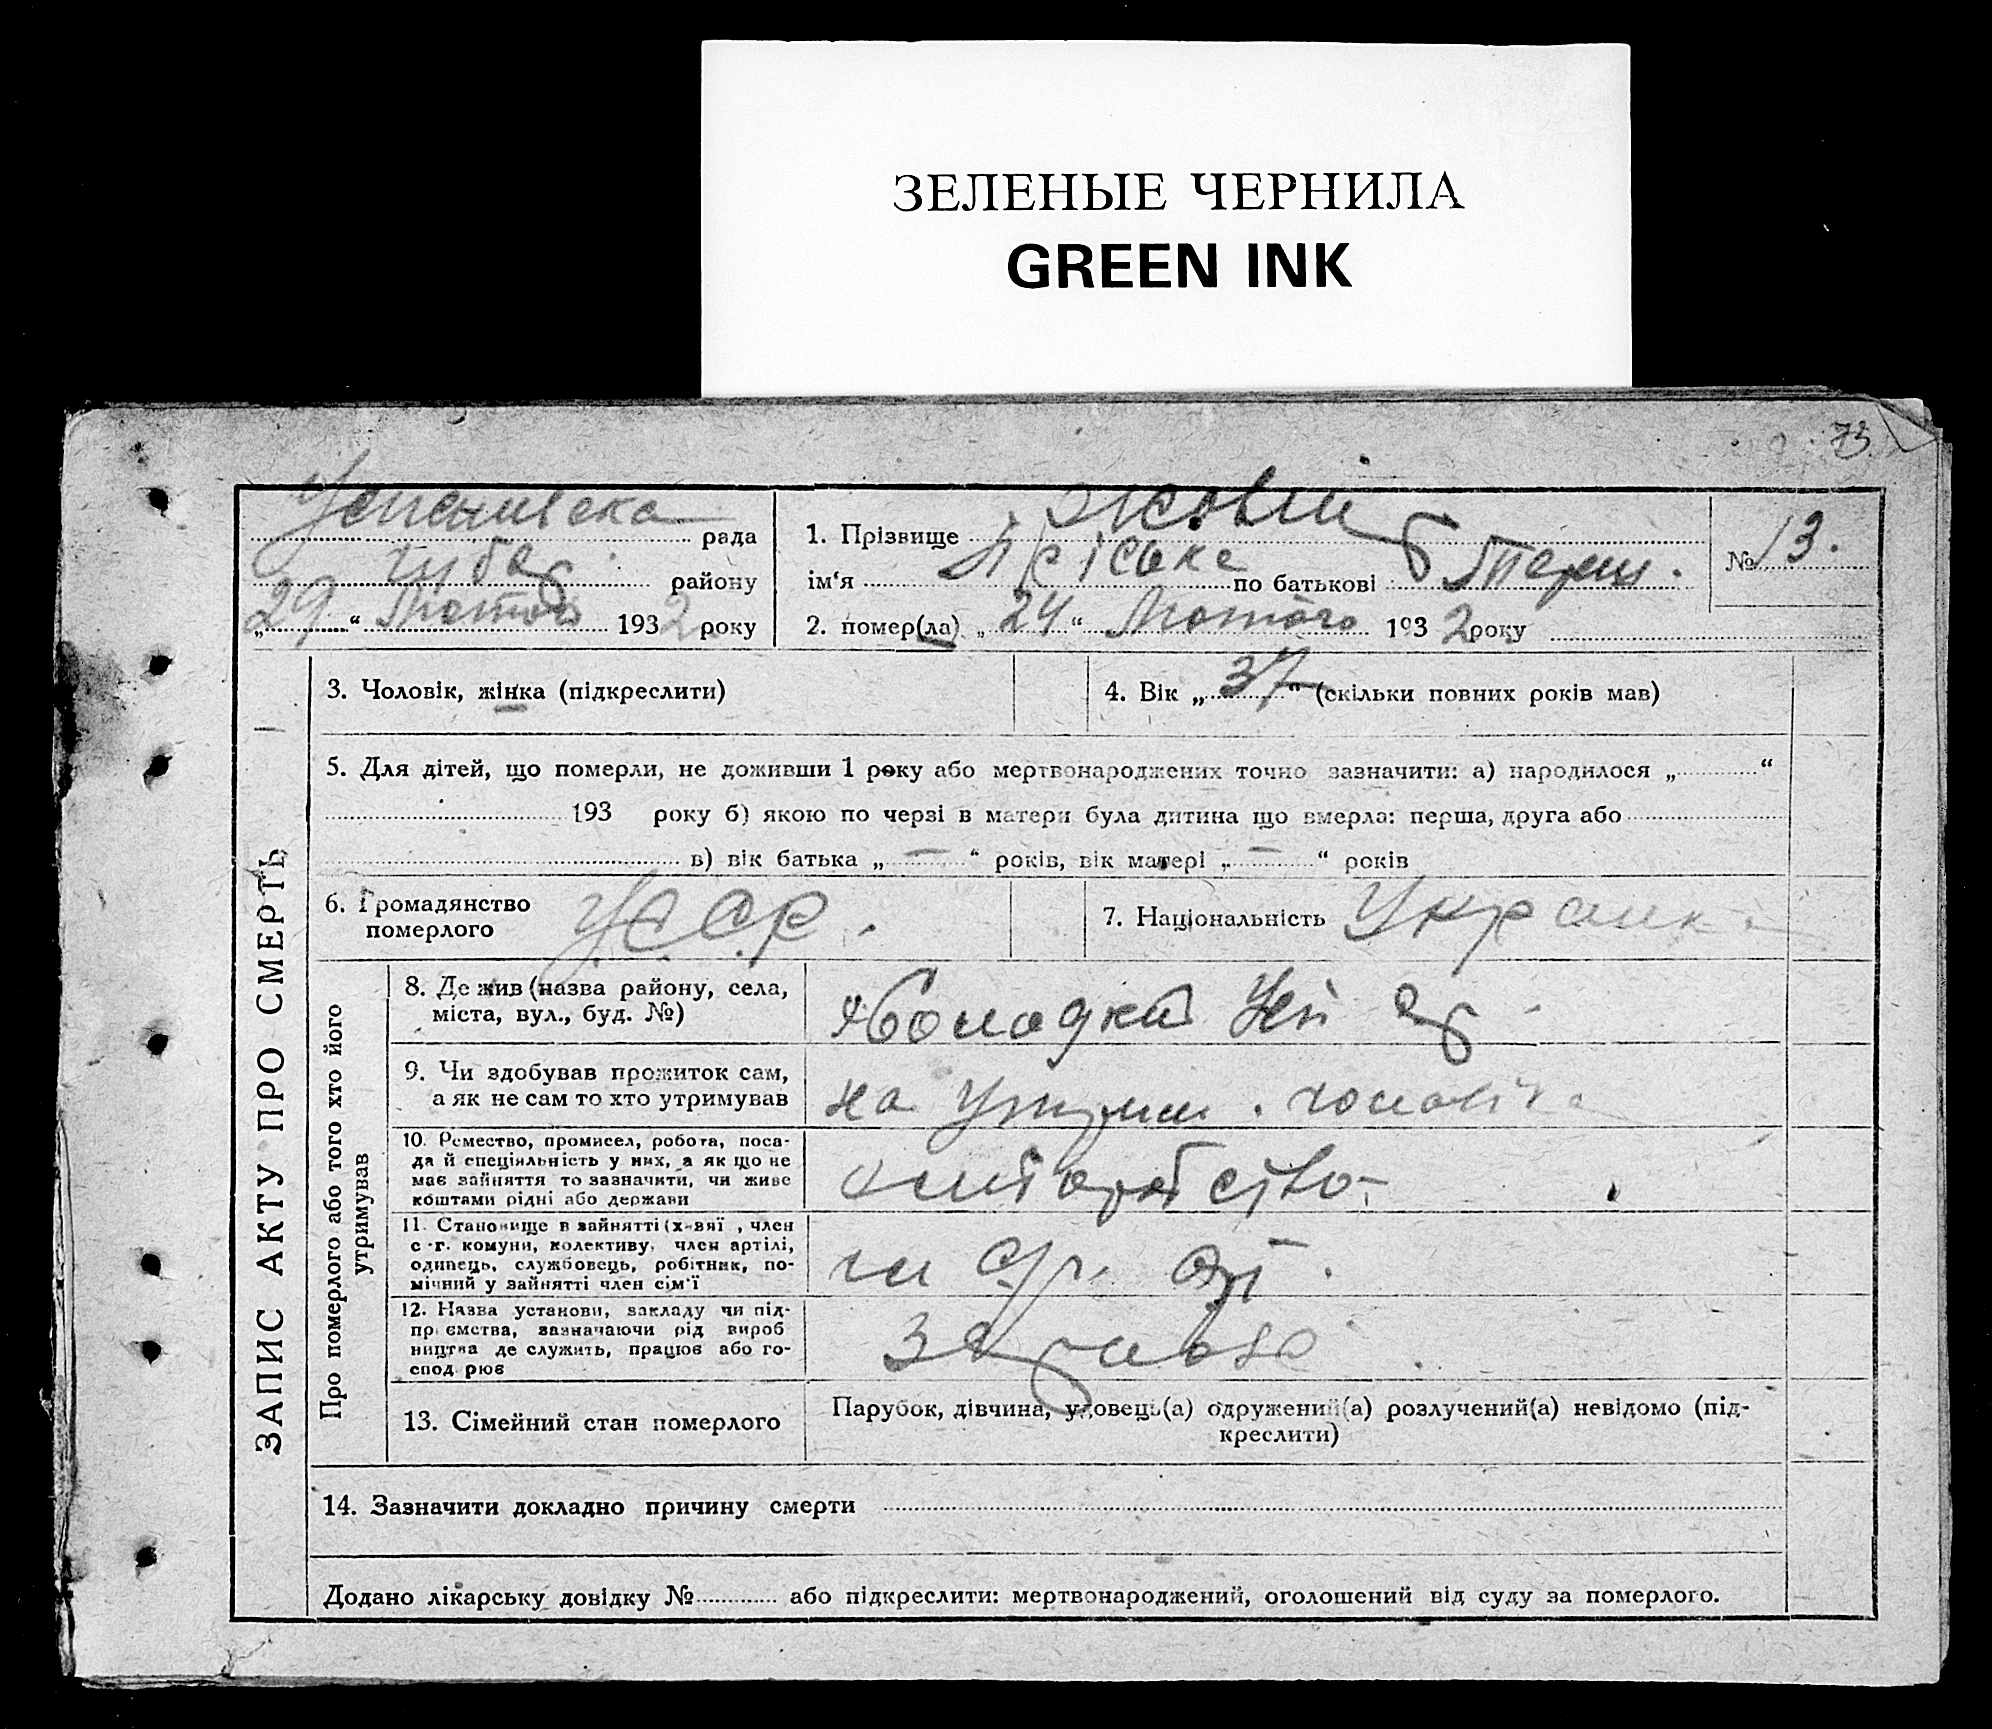 ЗЕЛЕНЫЕ ЧЕРНИЛА
GREEN INK
73
Успенивска рада
Чубар. району
„29“ Лютого 1932 року
1. Прізвище
ім‘я Пріська по батькові
№ 13.
2. помер(ла) „24“ Лютого 1932 року
ЗАПИС АКТУ ПРО СМЕРТЬ
3. Чоловік, жінка (підкреслити)
4. Вік „37“ (скільки повних років мав)
5. Для дітей, що померли, не доживши 1 року або мертвонароджених точно зазначити: а) народилося „ “
193 року б) якою по черзі в матери була дитина що вмерла: перша, друга або
в) вік батька „ — “ років, вік матері „ — “ років
6. Громадянство
померлого
УССР.
7. Національність Украинка
Про померлого або того хто його
утримував
8. Де жив (назва району, села,
міста, вул., буд. №)
9. Чи здобував прожиток сам,
а як не сам то хто утримував
на утрим. чоловіка
10. Ремество, промисел, робота, поса-
да й спеціяльність у них, а як що не
має зайняття то зазначити, чи живе
коштами рідні або держави
хліборобство
11. Становище в зайнятті (х-вяї , член
с-г. комуни, колективу, член артілі,
одинець, службовець, робітник, по-
мічний у зайнятті член сім'ї
12. Назва установи, закладу чи під-
приємства, зазначаючи рід вироб
ництва де служить, працює або го-
сподарює
13. Сімейний стан померлого
Парубок, дівчина, удовець(а) одружений(а) розлучений(а) невідомо (під-
креслити)
14. Зазначити докладно причину смерти
Додано лікарську довідку № або підкреслити: мертвонароджений, оголошений від суду за померлого.